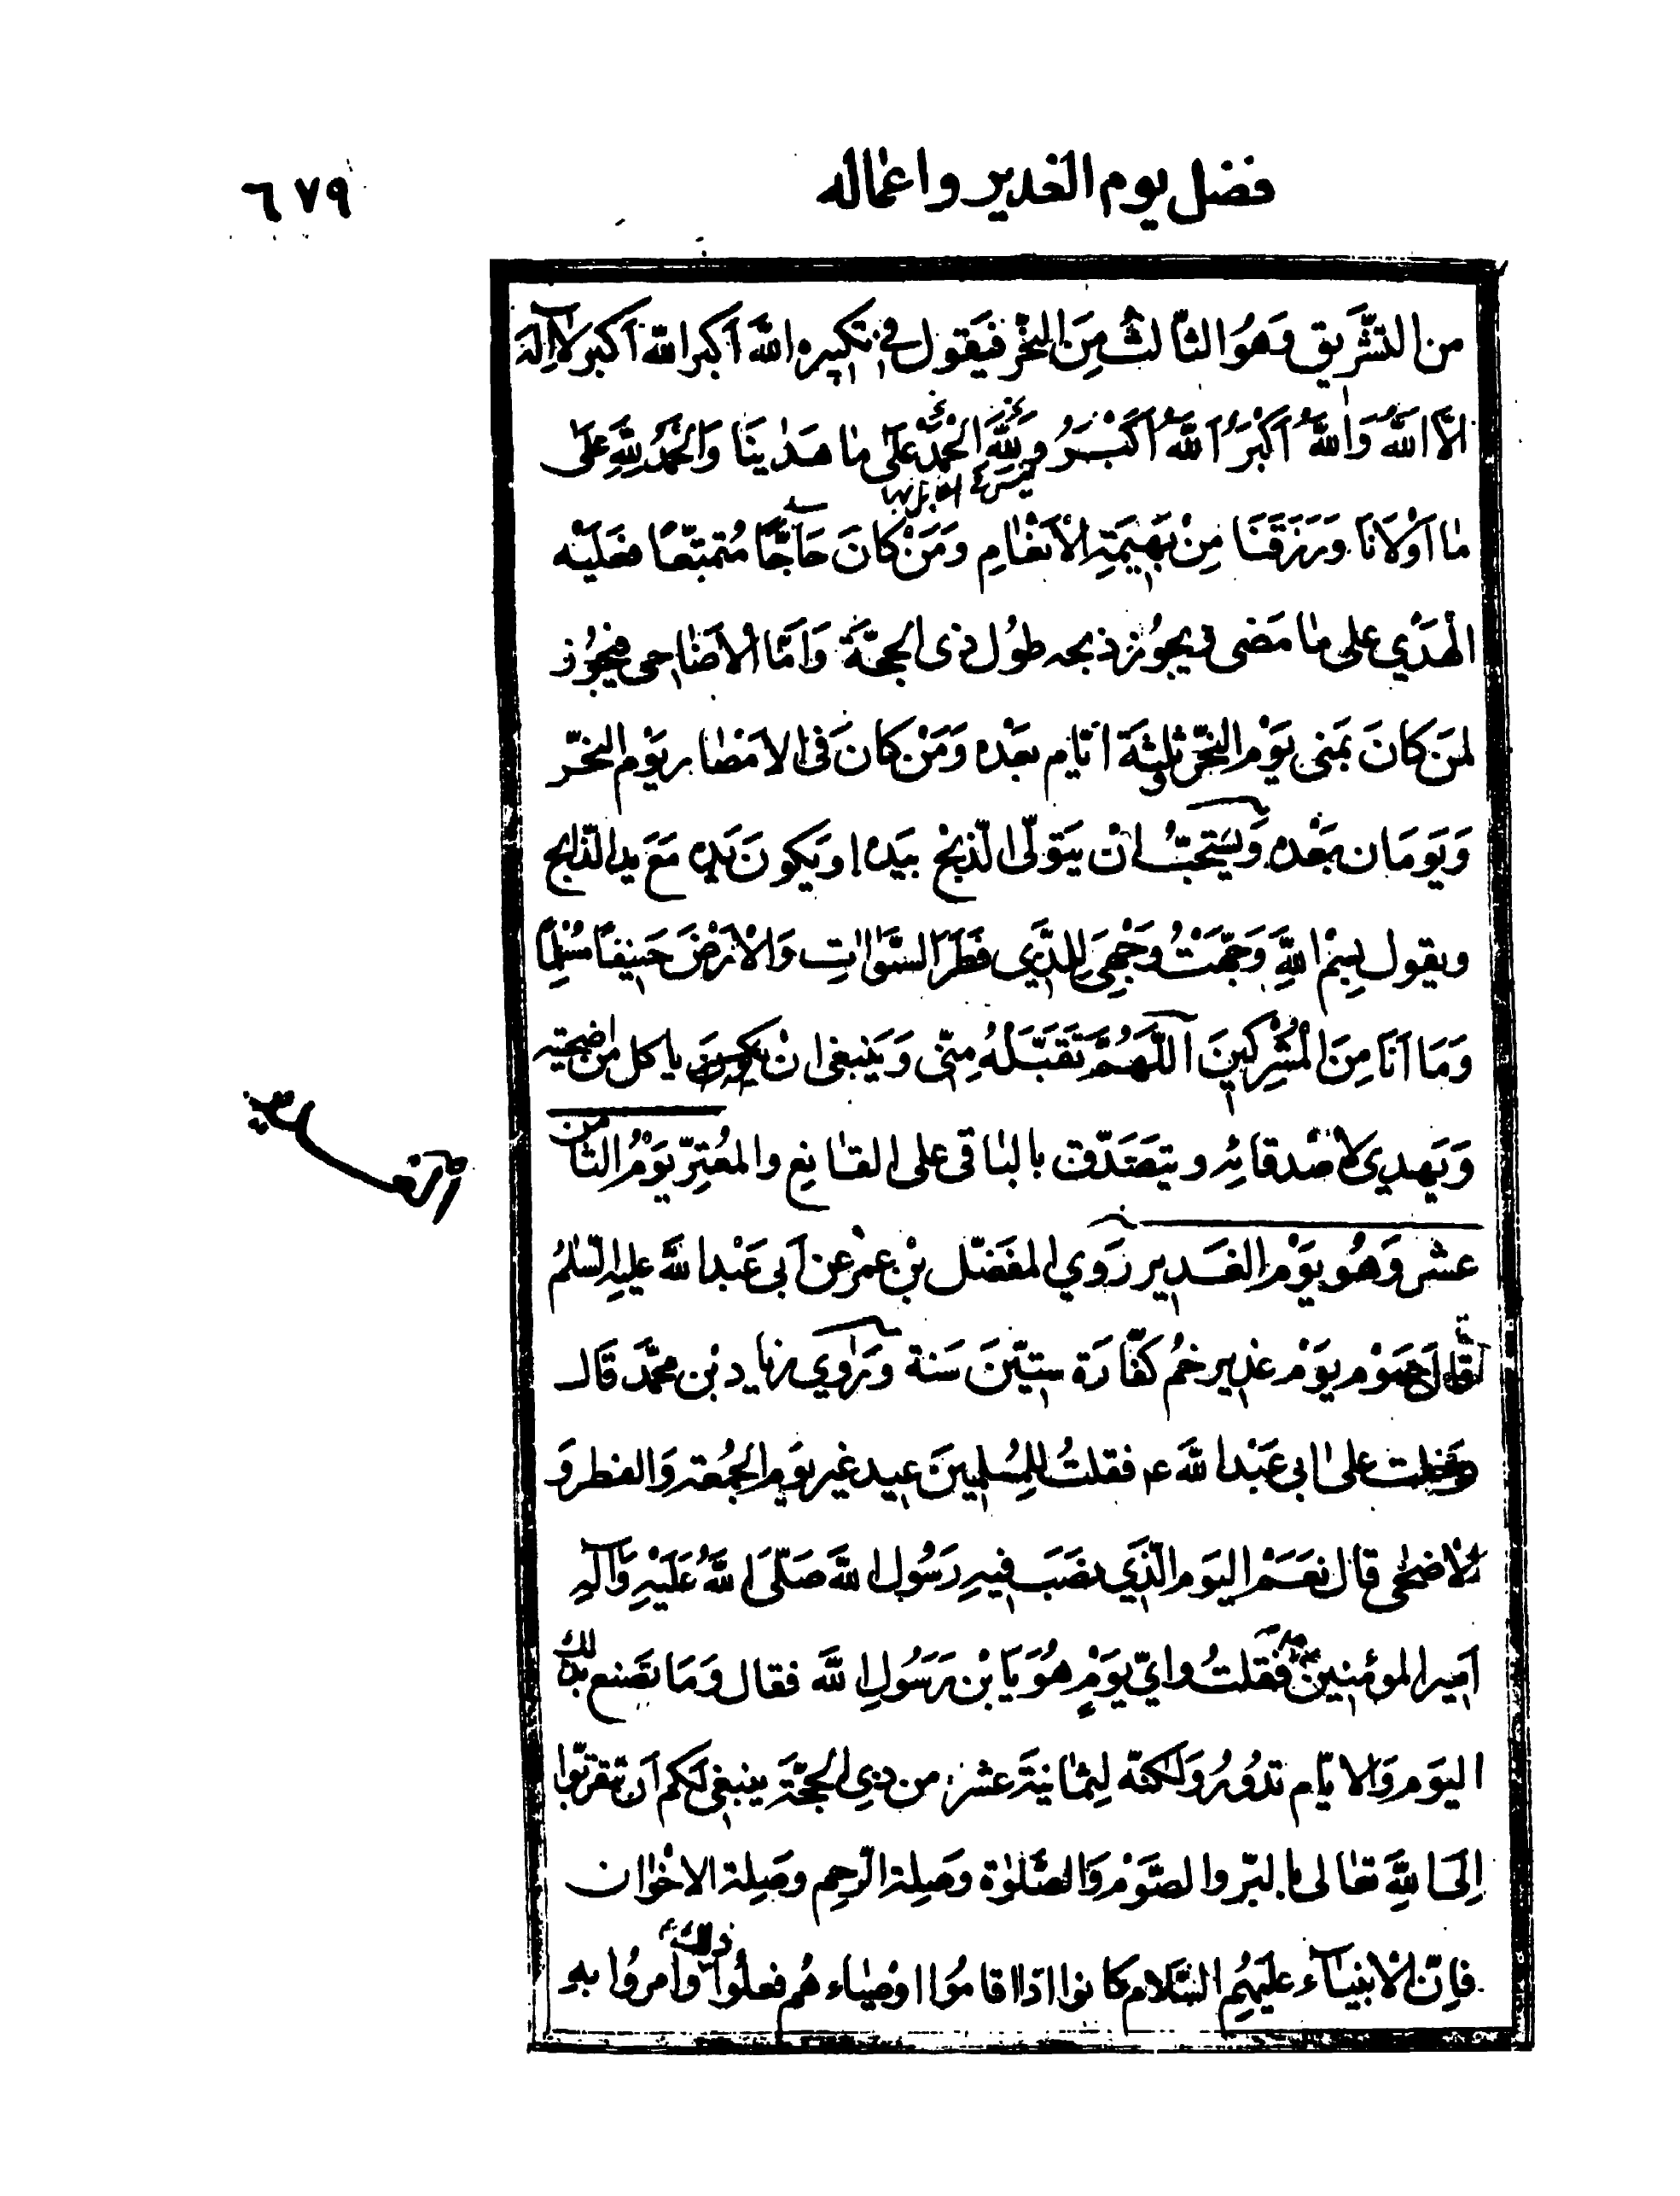 فضل يوم الغدير واعماله
٦٧٩
من التشريق وَهُوَ الثّالث مِنَ النحْر فيَقول في تكبيره اللّهَ اَكبر اللّه اَكبر لا اِلهَ
الاَّ اللَّهُ وَاللَّهُ اَكْبَرُ اَللَّهُ اَكْبَرُ وَلِلَّهِ الْحَمْدُ عَلَى مَا هَدٰينَا وَالْحَمْدُ لِلَّهِ عَلَى
مٰا اَوْلاَنَا وَرَزَقَنَا مِنْ بَهِيمَةِ الْاَنْعٰامِ وَمَنْ كَانَ حَاجًّا مُتمتّعًا فعَلَيْه
الهَدْي على مٰا مَضى ويجوُز ذبحه طوُل ذى الحجّة وَاَمَّا الاَضٰاحى فيجوُز
لمَن كَانَ بمَنى يَوْم النحّر وثلثة اَيّام بَعْده وَمَنْ كانَ في الامْصٰار يَوْم النحّر
وَيَومَان بَعْده وَيسَتحبّ انْ يَتَولّى الذّبْح بيَده او يَكونَ يَده مَعَ يد الذّابح
ويقول بِسْمِ اللَّهِ وَجَّهْتُ وَجْهِيَ لِلَّذِي فَطَرَ السَّمٰوٰاتِ وَالْاَرْضَ حَنِيفًا مُسْلِمًا
وَمَا اَنَا مِنَ الْمُشْرِكِينَ اَللّٰهُمَّ تَقَبَّلْهُ مِنّى وَيَنبغى انْ يكون ياكل من اضحيته
وَيَهدي لاصْدقائِه ويتصَدّق بالبٰاقى على القٰانِع والمعُتِرّ يَوْمُ الثّامن
عشر وَهُو يَوْم الغَدير رَوي المفَضّل بْن عمَر عن اَبى عَبْد اللَّه عليهِ السّلٰمُ
قال صَوْم يوَمْ غدير خمُ كفّارَة ستيّنَ سَنة وَرَوٰي زياد بْن محمَّد قَال
دَخلت على ابى عَبْد اللَّه ع فقلتُ للمُسلِمِينَ عيد غير يَوم الجمُعة وَالفطر وَ
الْاضحٰى قال نعَمْ اليَوم الّذي نصَبَ فيهِ رَسُول اللَّه صَلَّى اللَّهُ عَلَيْهِ وَآلِهِ
امير الموئمنين فقلتُ وايّ يَوْمٍ هُوَ يَا بْن رَسُولِ اللَّه فقال وَمَا تصَنع بذلك
اليَوم وَالايّام تدوُرُ وَلكنّه لِثمٰانيَة عشر من ذي الحجّة ينبغى لكم اَن تتقربّوا
اِلَى اللَّهِ تعٰالى بالبّر والصّوَمْ وَالصَّلوٰة وصِلة الرّحِم وصَِلة الاخْوٰان
فاِنّ الْانبيٰآءَ عليَهِمُ السَّلام كانوا اذا اقامُوا اوصْيٰاءهُم فعلوُا ذلك وامروُا به
الغدير